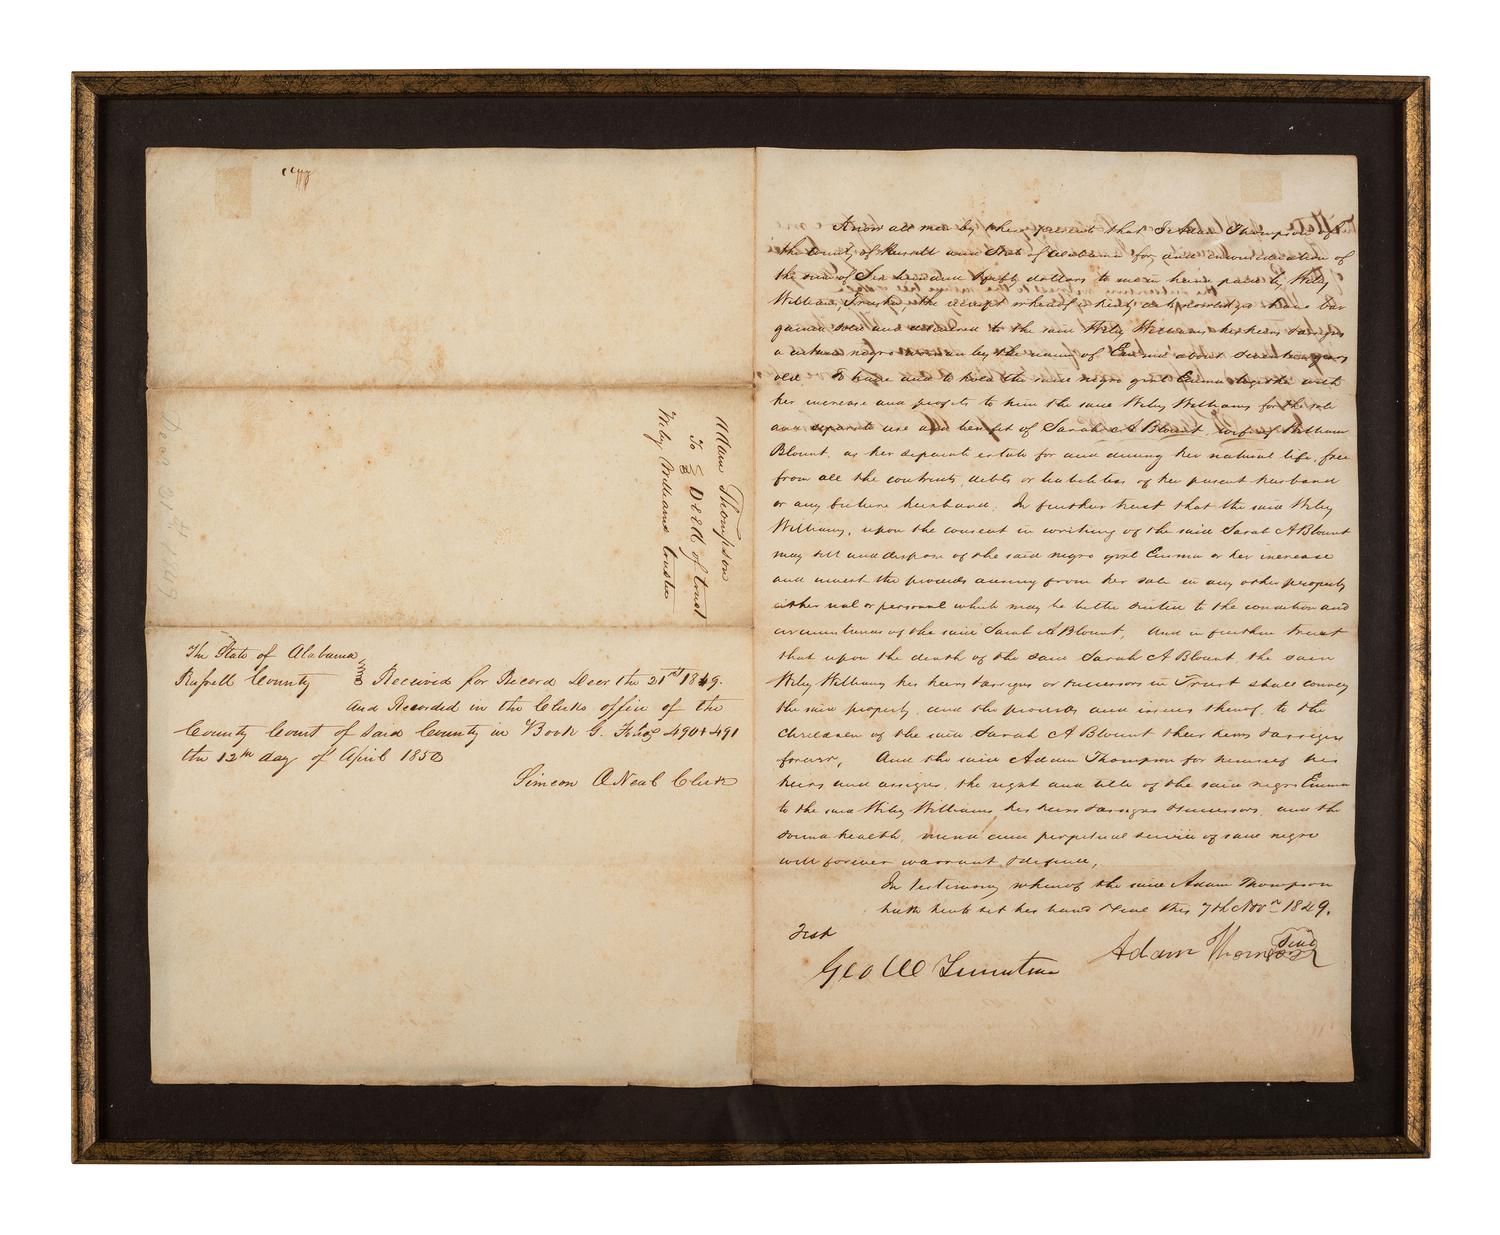 copy
Adam Thompson
To Deed of trust
Wiley Williams trustee
Decr 21st 1849
The State of Alabama
Russell County Received for Record Decr the 21st 1849.
and Recorded in the Clerks office of the
County Court of said County in Book G. Folios 490 & 491
the 12th day of April 1850
Simeon O Neal Clerk
Know all men by these present that I Adam Thompson of
the County of Russell and State of Alabama for and in consideration of
the sum of Six hundred & fifty dollars to me in hand paid by Wiley
Williams, Trustee, the receipt whereof is hereby acknowledged have bar
gained sold and delivered to the said Wiley Williams his heirs & assigns
a certain negro woman by the name of Emma about seventeen years
old. To have and to hold the said negro girl Emma together with
her increase and profits to him the said Wiley Williams for the sole
and separate use and benefit of Sarah A Blount, wife of William
Blount, as her separate estate for and during her natural life, free
from all the contracts, debts or liabilities of her present husband
or any future husband. In further trust that the said Wiley
Williams, upon the consent in writing of the said Sarah A Blount
may sell and dispose of the said negro girl Emma or her increase
and invest the proceeds arising from her sale in any other property
either real or personal which may be better suited to the condition and
circumstances of the said Sarah A Blount, and in further trust
that upon the death of the said Sarah A Blount, the said
Wiley Williams his heirs & assigns or successors in Trust shall convey
the said property, and the proceeds and issues thereof, to the
children of the said Sarah A Blount their heirs & assigns
forever, And the said Adam Thompson for himself his
heirs and assigns, the right and title of the said negro Emma
to the said Wiley Williams his heirs & assigns & successors, and the
sound health, mind and perpetual service of said negro
will forever warrant & defend,
In testimony whereof the said Adam Thompson
hath hereto set his hand & seal this 7th Novr 1849.
Test
Adam Thompson Seal
Geo W